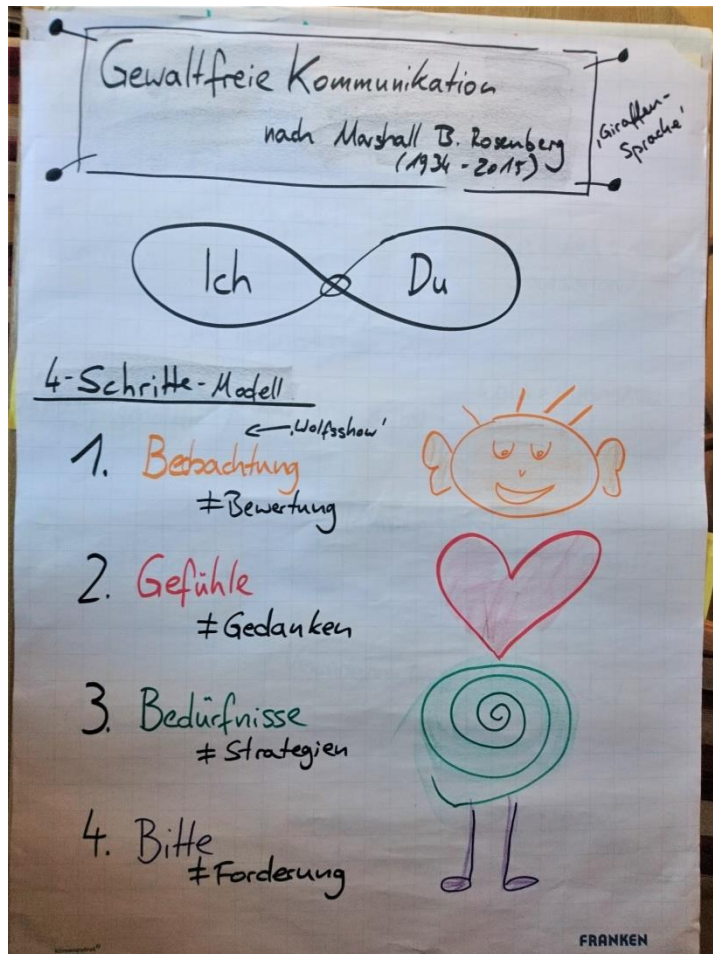 Gewaltfreie Kommunikation
nach Marshall B. Rosenberg
(1934 - 2015)
'Giraffen-
Sprache'
Ich Du
4-Schritte-Modell
← 'Wolfsshow'
1. Beobachtung
≠ Bewertung
2. Gefühle
≠ Gedanken
3. Bedürfnisse
≠ Strategien
4. Bitte
≠ Forderung
FRANKEN